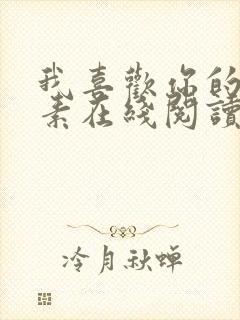 我喜歡你的
素在綫閱讀
冷月秋蟬